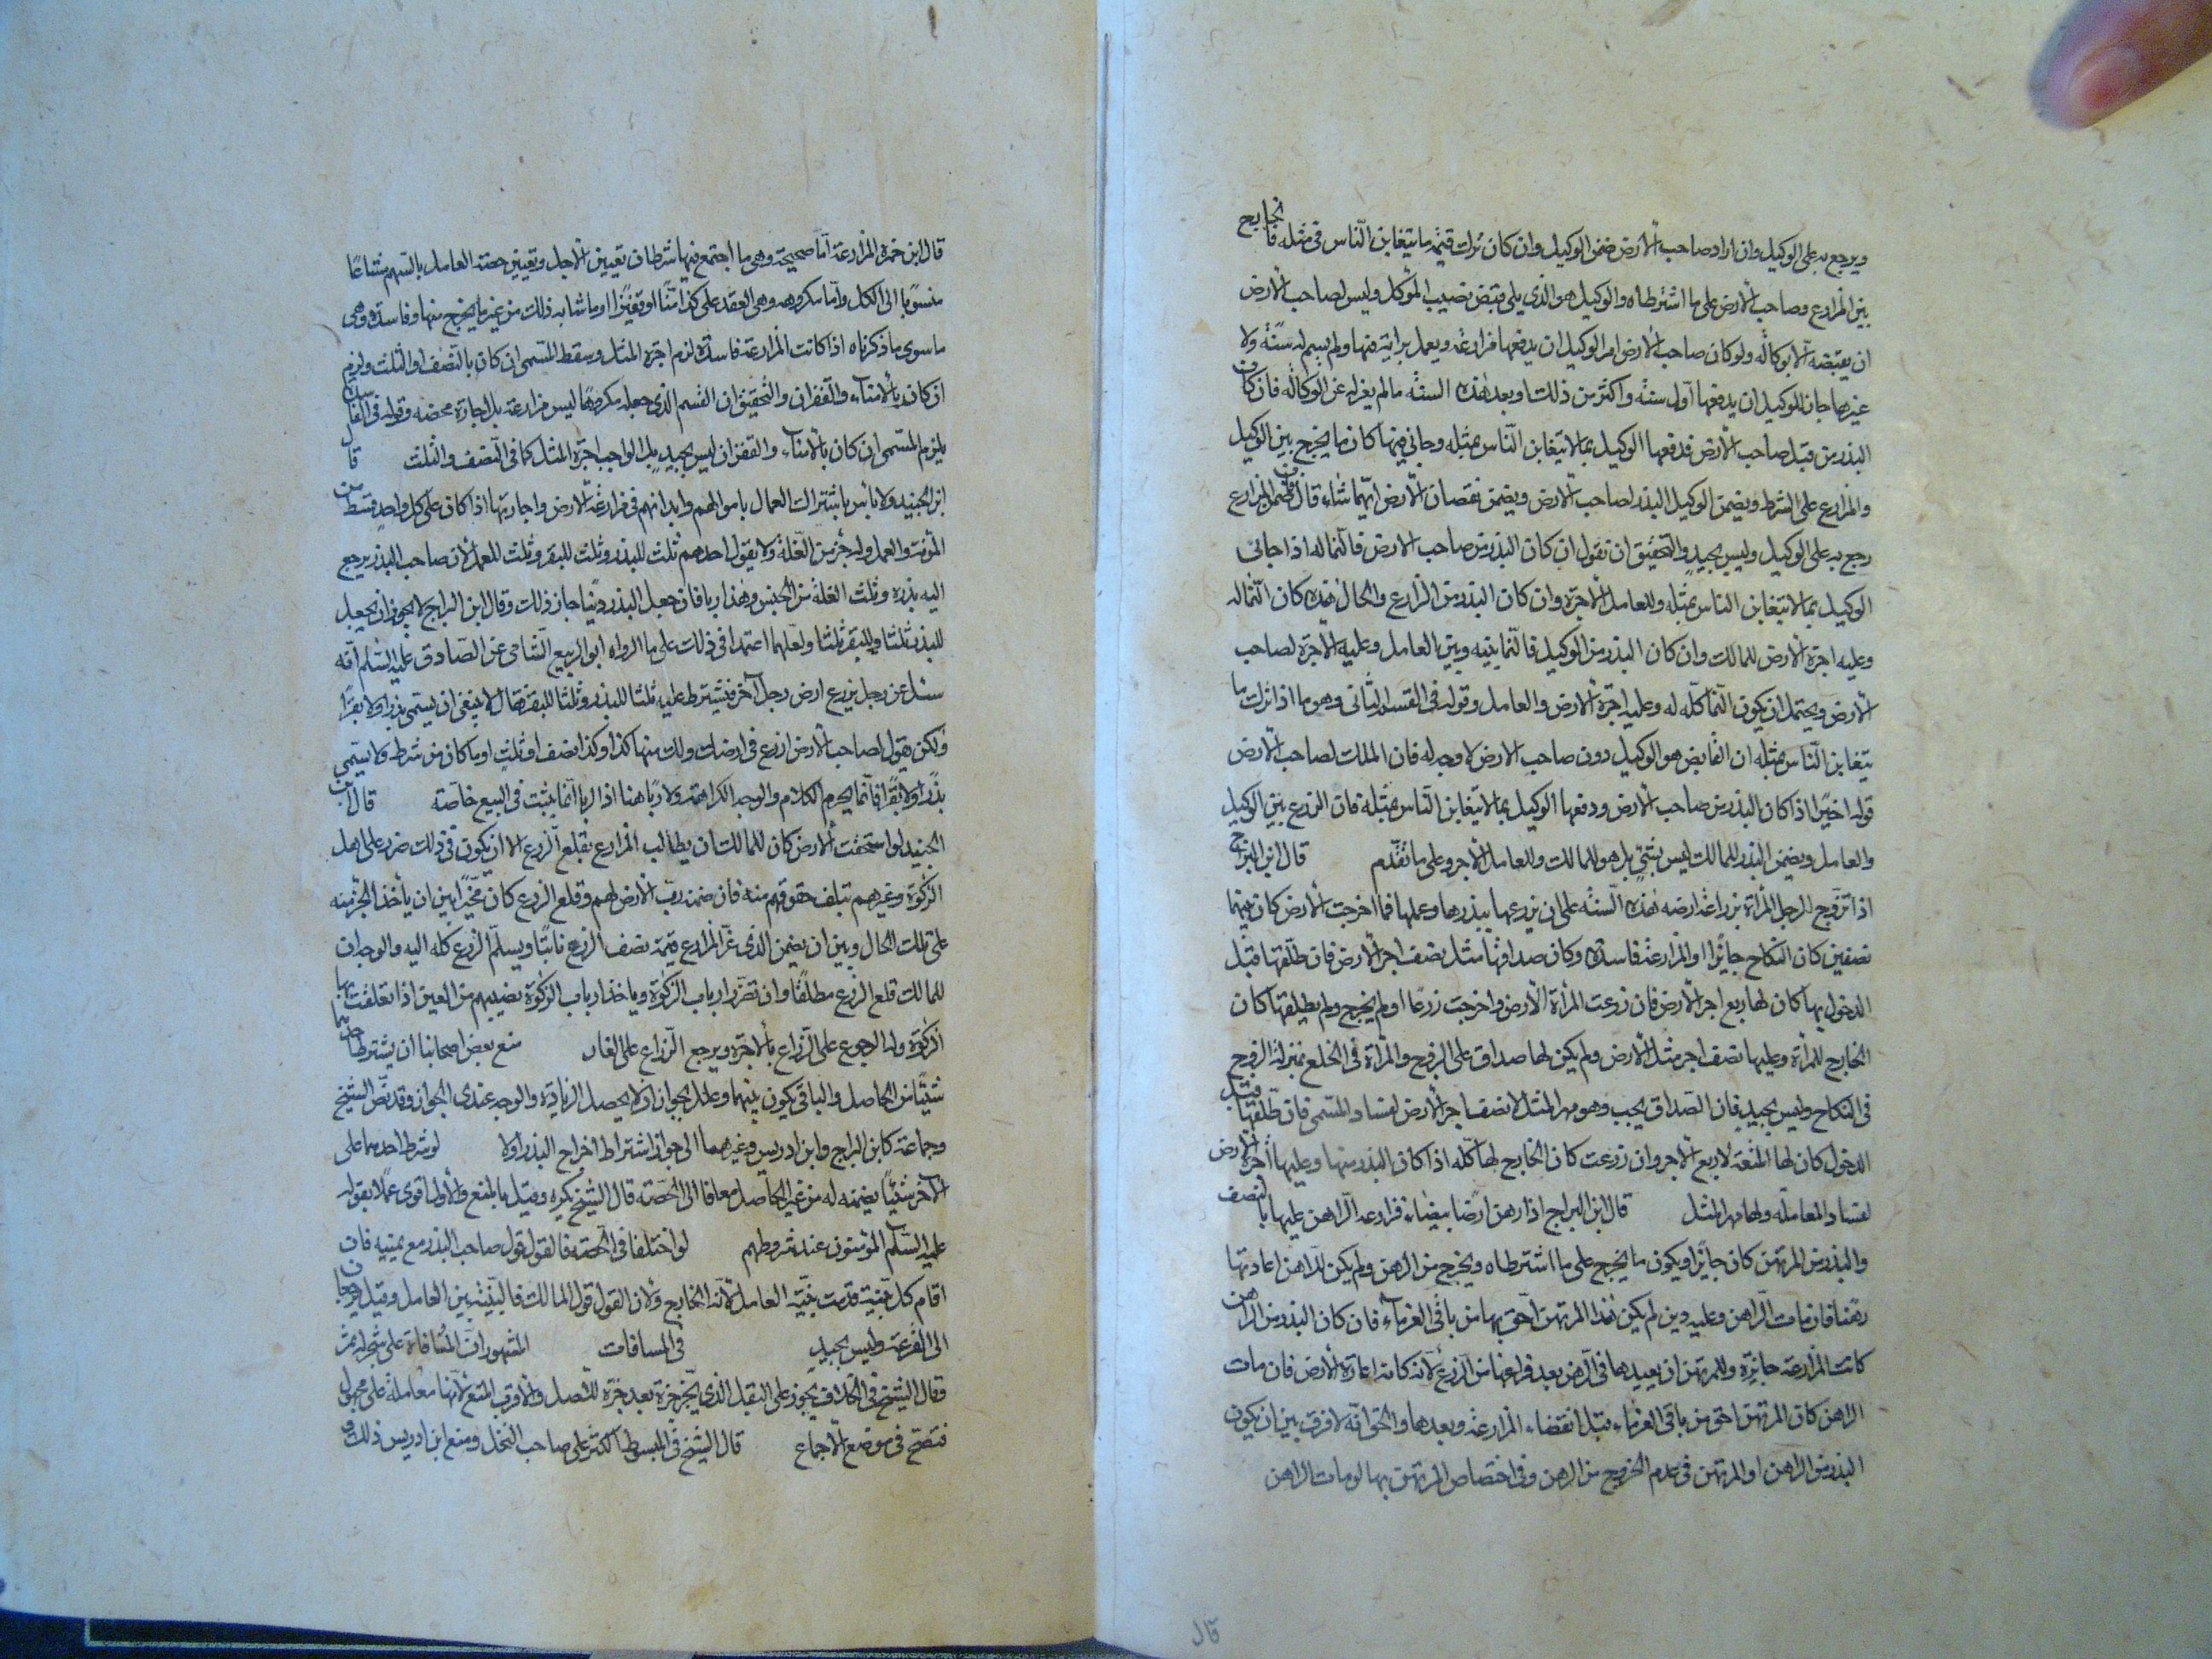 ويرجع به على الوكيل وان اراد صاحب الارض ضمن الوكيل وان كان ترك قيمة ما يتغابن الناس في مثله فالخارج
بين المزارع وصاحب الارض على ما اشترطاه والوكيل هو الذي يلي قبض نصيب الموكل وليس لصاحب الارض
ان يقبضه الا بوكالة ولو كان صاحب الارض امر الوكيل ان يدفعها مزارعة ويعمل برايه فيها ولم يسم له سنة ولا
غيرها جاز للوكيل ان يدفعها اول سنة واكثر من ذلك وبعد هذه السنة ما لم يعزله عن الوكالة فان كان
البذر من قبل صاحب الارض فدفعها الوكيل بما لا يتغابن الناس بمثله وحابى فيها كان ما يخرج بين الوكيل
والمزارع على الشرط ويضمن الوكيل البذر لصاحب الارض ويضمن نقصان الارض ايهما شاء قال فان ضمن المزارع
رجع به على الوكيل وليس بجيد والتحقيق ان نقول ان كان البذر من صاحب الارض فالنماء له اذا حابى
الوكيل بما لا يتغابن الناس بمثله وللعامل الاجرة وان كان البذر من الزارع والحال هذه كان النماء له
وعليه اجرة الارض للمالك وان كان البذر من الوكيل فالنماء بينه وبين العامل وعليه الاجرة لصاحب
الارض ويحتمل ان يكون النماء كله له وعليه اجرة الارض والعامل وقوله في القسم الثاني وهو ما اذا ترك ما
يتغابن الناس بمثله ان القابض هو الوكيل دون صاحب الارض لا وجه له فان الملك لصاحب الارض
قوله اخيرا اذا كان البذر من صاحب الارض ودفعها الوكيل بما لا يتغابن الناس بمثله فان الزرع بين الوكيل
والعامل ويضمن البذر للمالك ليس بشئ بل هو للمالك وللعامل الاجر وعلى ما تقدم قال ابن البراج
اذا تزوج الرجل المرأة بزراعة ارضه هذه السنة على ان يزرعها ببذرها وعملها فما اخرجت الارض كان بينهما
نصفين كان النكاح جايزا والمزارعة فاسدة وكان صداقها مثل نصف اجر الارض فان طلقها قبل
الدخول بها كان لها ربع اجر الارض فان زرعت المرأة الارض واخرجت زرعا او لم يخرج ولم يطلقها كان
الخارج للمرأة وعليها نصف اجر مثل الارض ولم يكن لها صداق على الزوج والمرأة في الخلع بمنزلة الزوج
في النكاح وليس بجيد فان الصداق يجب وهو مهر المثل لا نصف اجر الارض لفساد المسمى فان طلقها قبل
الدخول كان لها المتعة لا ربع الاجر وان زرعت كان الخارج لها كله اذا كان البذر منها وعليها اجرة الارض
لفساد المعاملة ولها مهر المثل قال ابن البراج اذا رهن ارضا بيضاء فزارعه الراهن عليها بالنصف
والبذر من المرتهن كان جايزا ويكون ما يخرج على ما اشترطاه ويخرج من الرهن ولم يكن للراهن اعادتها
رهنا فان مات الراهن وعليه دين لم يكن هذا المرتهن احق بها من باقي الغرماء فان كان البذر من الراهن
كانت المزارعة جايزة وللمرتهن ان يعيدها في الرهن بعد فراغها من الزرع لانه كانه اعارة الارض فان مات
الراهن كان المرتهن احق من باقي الغرماء قبل انقضاء المزارعة وبعدها والحق انه لا فرق بين ان يكون
البذر من الراهن او المرتهن في عدم الخروج من الرهن وفي اختصاص المرتهن بها لو مات الراهن
قال
قال ابن حمزة المزارعة اما صحيحة وهي ما اجتمع فيها شرطان تعيين الاجل وتعيين حصة العامل بالسهم مشاعا
منسوبا الى الكل واما مكروهه وهي العقد على كذا منا او قفيزا او ما شابه ذلك من غير ما يخرج منها وفاسدة وهي
ما سوى ما ذكرناه اذا كانت المزارعة فاسدة لزم اجرة المثل وسقط المسمى ان كان بالنصف او الثلث ولزم
ان كان بالامناء والقفزان والتحقيق ان القسم الذي جعله مكروها ليس مزارعة بل اجارة محضه وقوله في الفاسدة
يلزم المسمى ان كان بالامناء والقفزان ليس بجيد بل الواجب اجرة المثل كما في النصف والثلث قال
ابن الجنيد ولا باس باشتراك العمال باموالهم وابدانهم في مزارعة الارض واجارتها اذا كان على كل واحد قسط من
المؤنة والعمل وله جزء من الغلة ولا يقول احدهم ثلث للبذر وثلث للبقر وثلث للعمل لان صاحب البذر يرجع
اليه بذره وثلث الغلة من الجنس وهذا ربا فان جعل البذر دينا جاز ذلك وقال ابن البراج لا يجوز ان يجعل
للبذر ثلثا وللبقر ثلثا ولعلهما اعتمدا في ذلك على ما رواه ابو الربيع الشامي عن الصادق عليه السلم انه
سئل عن رجل يزرع ارض رجل آخر فيشترط عليه ثلثا للبذر وثلثا للبقر فقال لا ينبغي ان يسمي بذرا ولا بقرا
ولكن يقول لصاحب الارض ازرع في ارضك ولك منها كذا وكذا نصف او ثلث او ما كان من شرط ولا يسمي
بذرا ولا بقرا فانما يحرم الكلام والوجه الكراهة ولا ربا هنا اذ الربا انما يثبت في البيع خاصة قال ابن
الجنيد لو استحقت الارض كان للمالك ان يطالب المزارع بقلع الزرع الا ان يكون في ذلك ضرر على اهل
الزكوة وغيرهم بتلف حقوقهم منه فان ضمنه رب الارض لهم وقلع الزرع كان مخيرا بين ان يأخذ الجزء منه
على تلك الحال وبين ان يضمن الذي غر المزارع قيمة نصف الزرع ثابتا ويسلم الزرع كله اليه والوجه ان
للمالك قلع الزرع مطلقا وان تضرر ارباب الزكوة وياخذ ارباب الزكوة نصيبهم من العين اذا تعلقت بها
الزكوة وله الرجوع على الزراع بالاجرة ويرجع الزراع على الغار منع بعض اصحابنا ان يشترط احدهما
شيئا من الحاصل والباقي يكون بينهما وعلل بجواز ان لا يحصل الزيادة والوجه عندي الجواز وقد نص الشيخ
وجماعة كابن البراج وابن ادريس وغيرهما الى جواز اشتراط اخراج البذر اولا لو شرط احدهما على
الآخر شيئا يضمنه له من غير الحاصل مضافا الى الحصة قال الشيخ يكره وقيل بالمنع والاول اقوى عملا بقوله
عليه السلم المؤمنون عند شروطهم لو اختلفا في الحصة فالقول قول صاحب البذر مع يمينه فان
اقام كل بينة قدمت بينة العامل لانه الخارج ولان القول قول المالك فالبينة بينة العامل وقيل يرجعان
الى القرعة وليس بجيد في المساقات المشهور ان المساقاة على شجر له ثمر
وقال الشيخ في الخلاف يجوز على البقل الذي يجز جزة بعد جزة للاصل والاقرب المنع لانها معاملة على مجهول
فتصح في موضع الاجماع قال الشيخ في المبسوط الكش على صاحب النخل ومنع ابن ادريس ذلك و